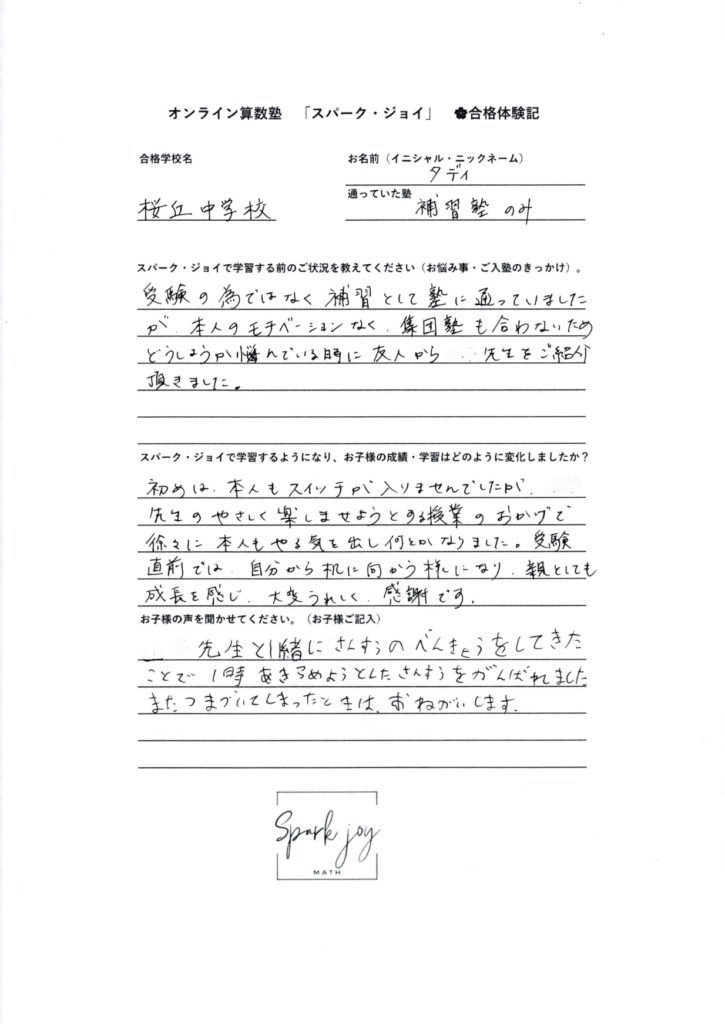 オンライン算数塾 「スパーク・ジョイ」 ✿合格体験記
合格学校名
お名前（イニシャル・ニックネーム）
タディ
通っていた塾
桜丘中学校
補習塾のみ
スパーク・ジョイで学習する前のご状況を教えてください（お悩み事・ご入塾のきっかけ）。
受験の為ではなく補習として塾に通っていました
が、本人のモチベーションなく、集団塾も合わないため
どうしようか悩んでいる時に友人から 先生をご紹介
頂きました。
スパーク・ジョイで学習するようになり、お子様の成績・学習はどのように変化しましたか？
初めは、本人もスイッチが入りませんでしたが、
先生のやさしく楽しませようとする授業のおかげで
徐々に本人もやる気を出し何とかなりました。受験
直前では、自分から机に向かう様になり、親としても
成長を感じ、大変うれしく、感謝です。
お子様の声を聞かせてください。（お子様ご記入）
先生と1緒にさんすうのべんきょうをしてきた
ことで1時あきらめようとしたさんすうをがんばれました
またつまづいてしまったときは、おねがいします。
Spark joy
MATH